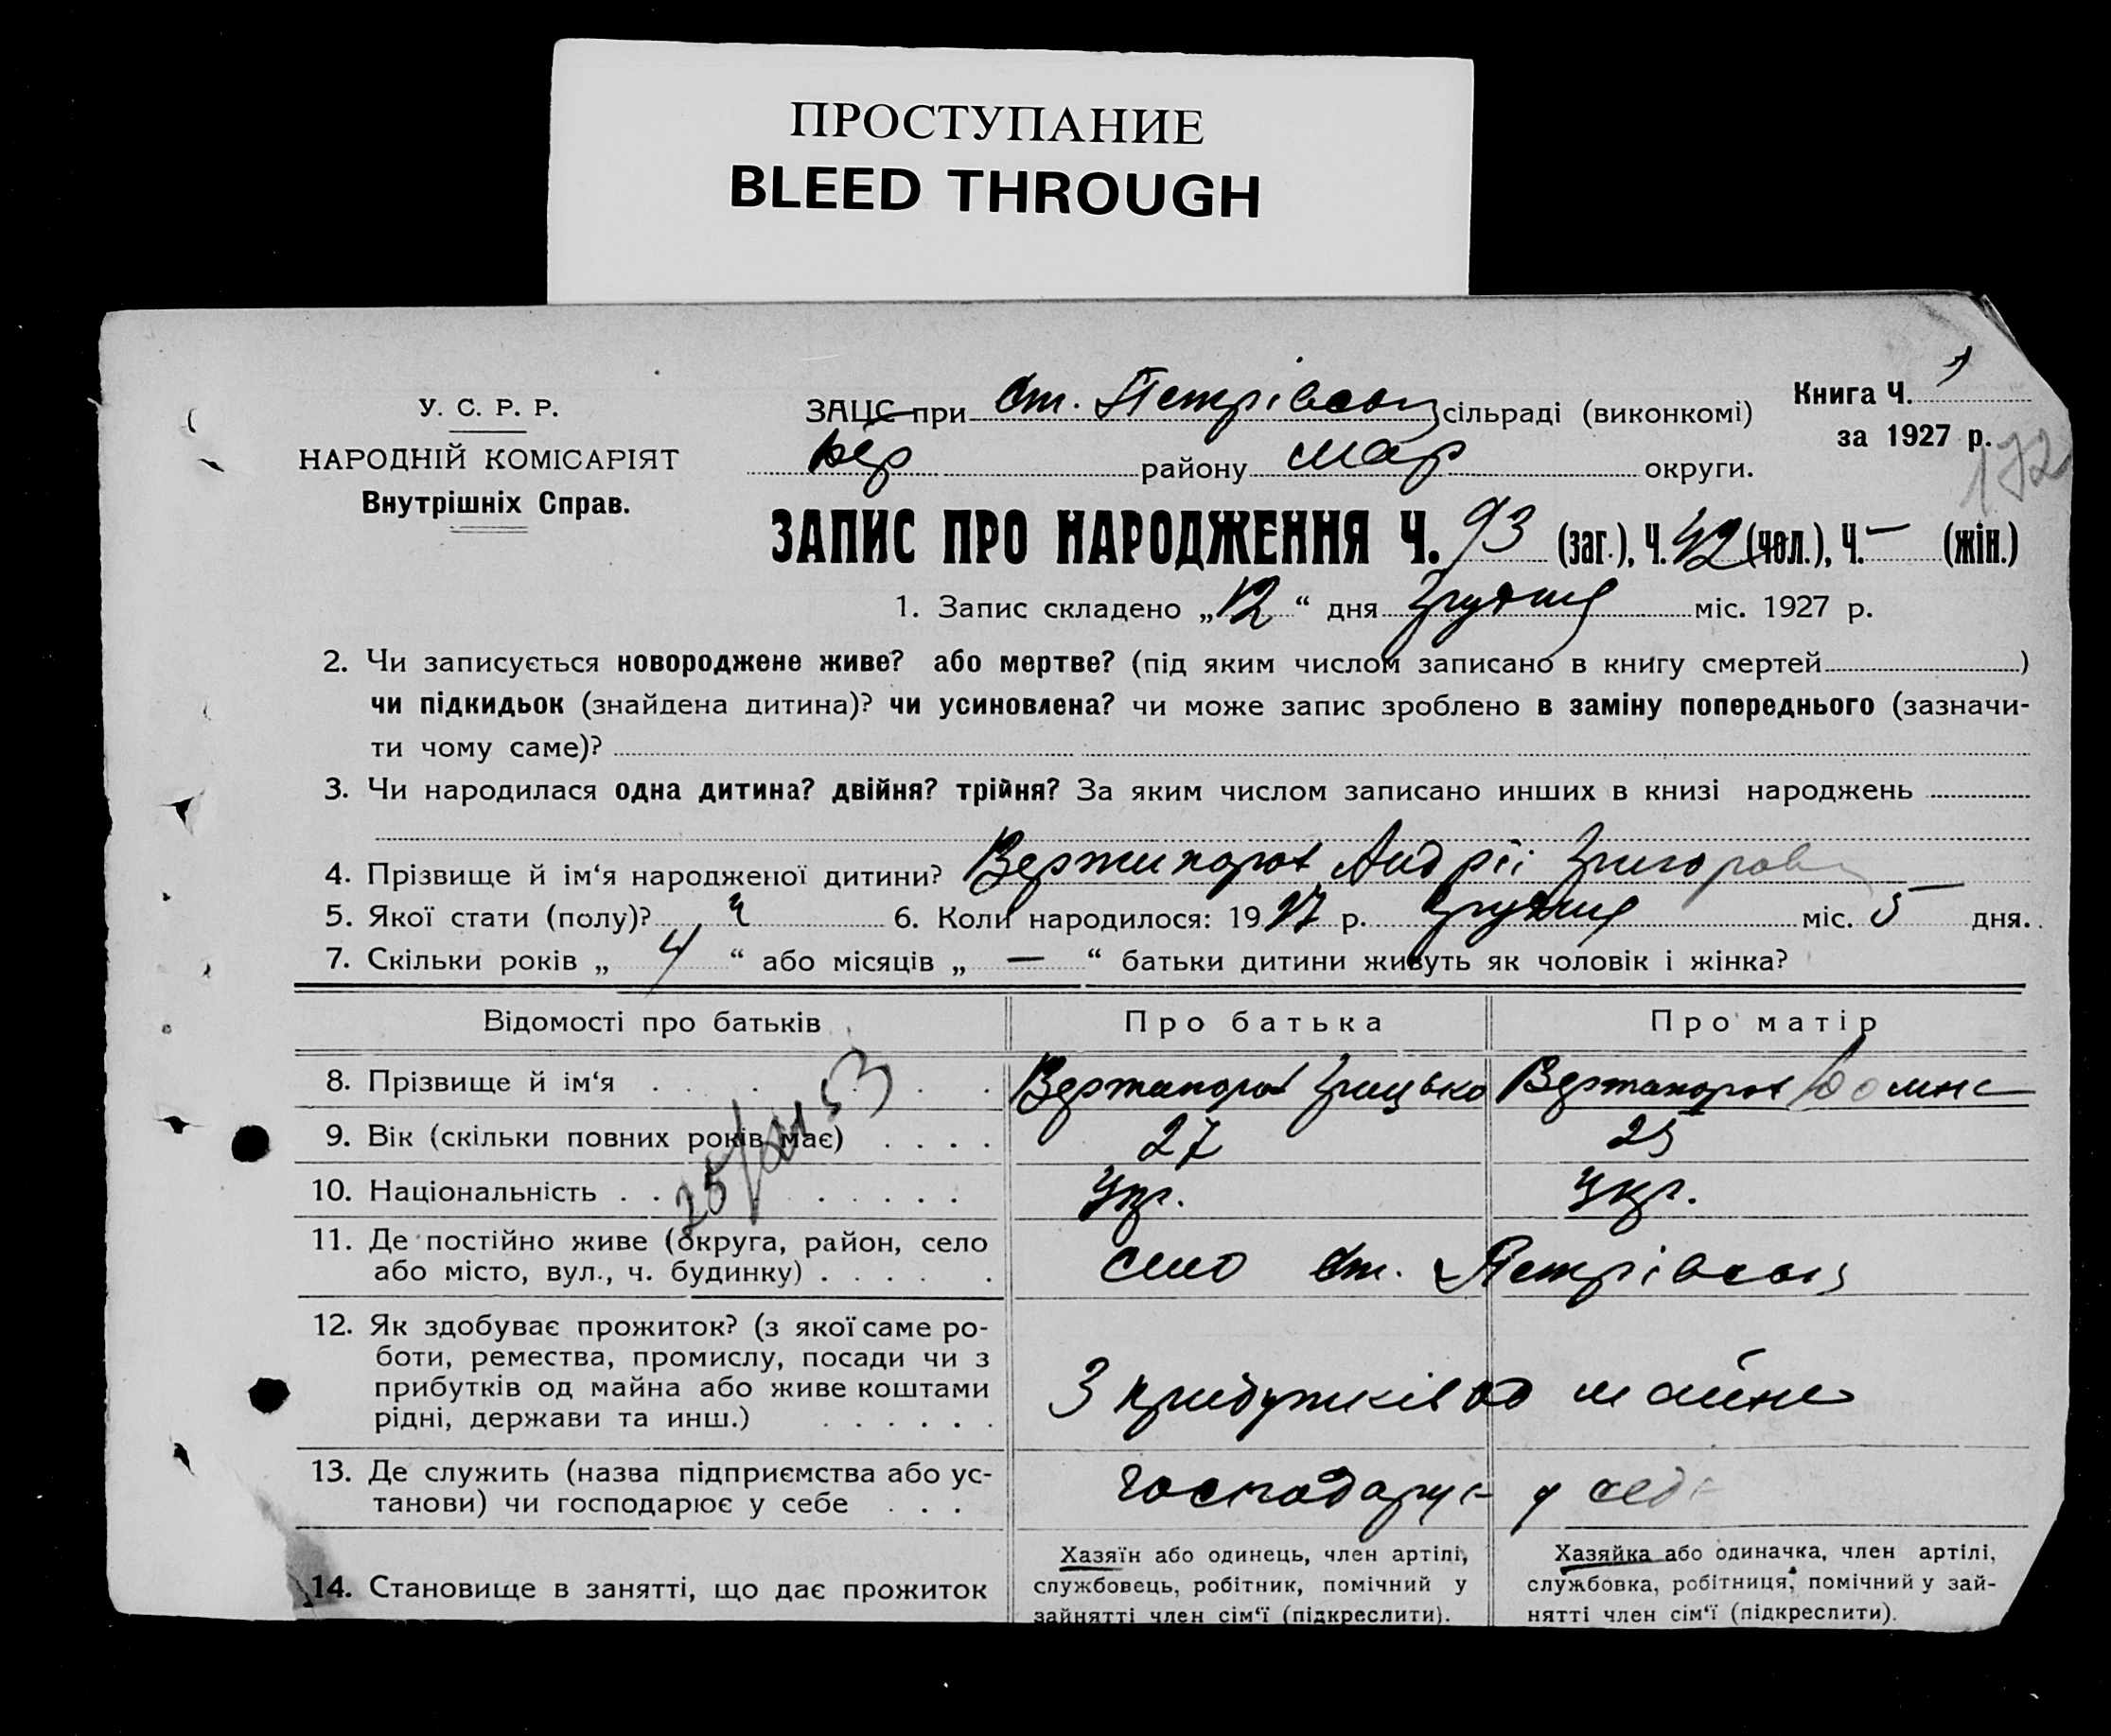 ПРОСТУПАНИЕ
BLEED THROUGH
У. С. Р. Р.
НАРОДНІЙ КОМІСАРІЯТ
Внутрішніх Справ.
ЗАЦС при Ст. Петрівськ сільраді (виконкомі)
Книга Ч. 1
за 1927 р.
172
Бер району Мар округи.
ЗАПИС ПРО НАРОДЖЕННЯ Ч. 93 (заг.), Ч. 42 (чол.), Ч. — (жін.)
1. Запис складено „12“ дня Грудня міс. 1927 р.
2. Чи записується новороджене живе? або мертве? (під яким числом записано в книгу смертей )
чи підкидьок (знайдена дитина)? чи усиновлена? чи може запис зроблено в заміну попереднього (зазначи-
ти чому саме)?
3. Чи народилася одна дитина? двійня? трійня? За яким числом записано инших в книзі народжень
4. Прізвище й ім‘я народженої дитини? Вертипорох Андрій Григоров
5. Якої стати (полу)? ч 6. Коли народилося: 1927 р. Грудня міс. 5 дня.
7. Скільки років „ 4 “ або місяців „ — “ батьки дитини живуть як чоловік і жінка?
Відомості про батьків Про батька Про матір
8. Прізвище й ім‘я . . . . . . . Вертипорох Грицько Вертипорох Домна
9. Вік (скільки повних років має) . . . . 27 25
10. Національність . . . . . . . . Укр. Укр.
11. Де постійно живе (округа, район, село
або місто, вул., ч. будинку) . . . . . село Ст. Петрівськ
12. Як здобуває прожиток? (з якої саме ро-
боти, ремества, промислу, посади чи з
прибутків од майна або живе коштами
рідні, держави та инш.) . . . . . . З прибутків од майна
13. Де служить (назва підприємства або ус-
танови) чи господарює у себе . . . господарує у себе
14. Становище в занятті, що дає прожиток
Хазяїн або одинець, член артілі,
службовець, робітник, помічний у
зайнятті член сім‘ї (підкреслити).
Хазяйка або одиначка, член артілі,
службовка, робітниця, помічний у зай-
нятті член сім‘ї (підкреслити).